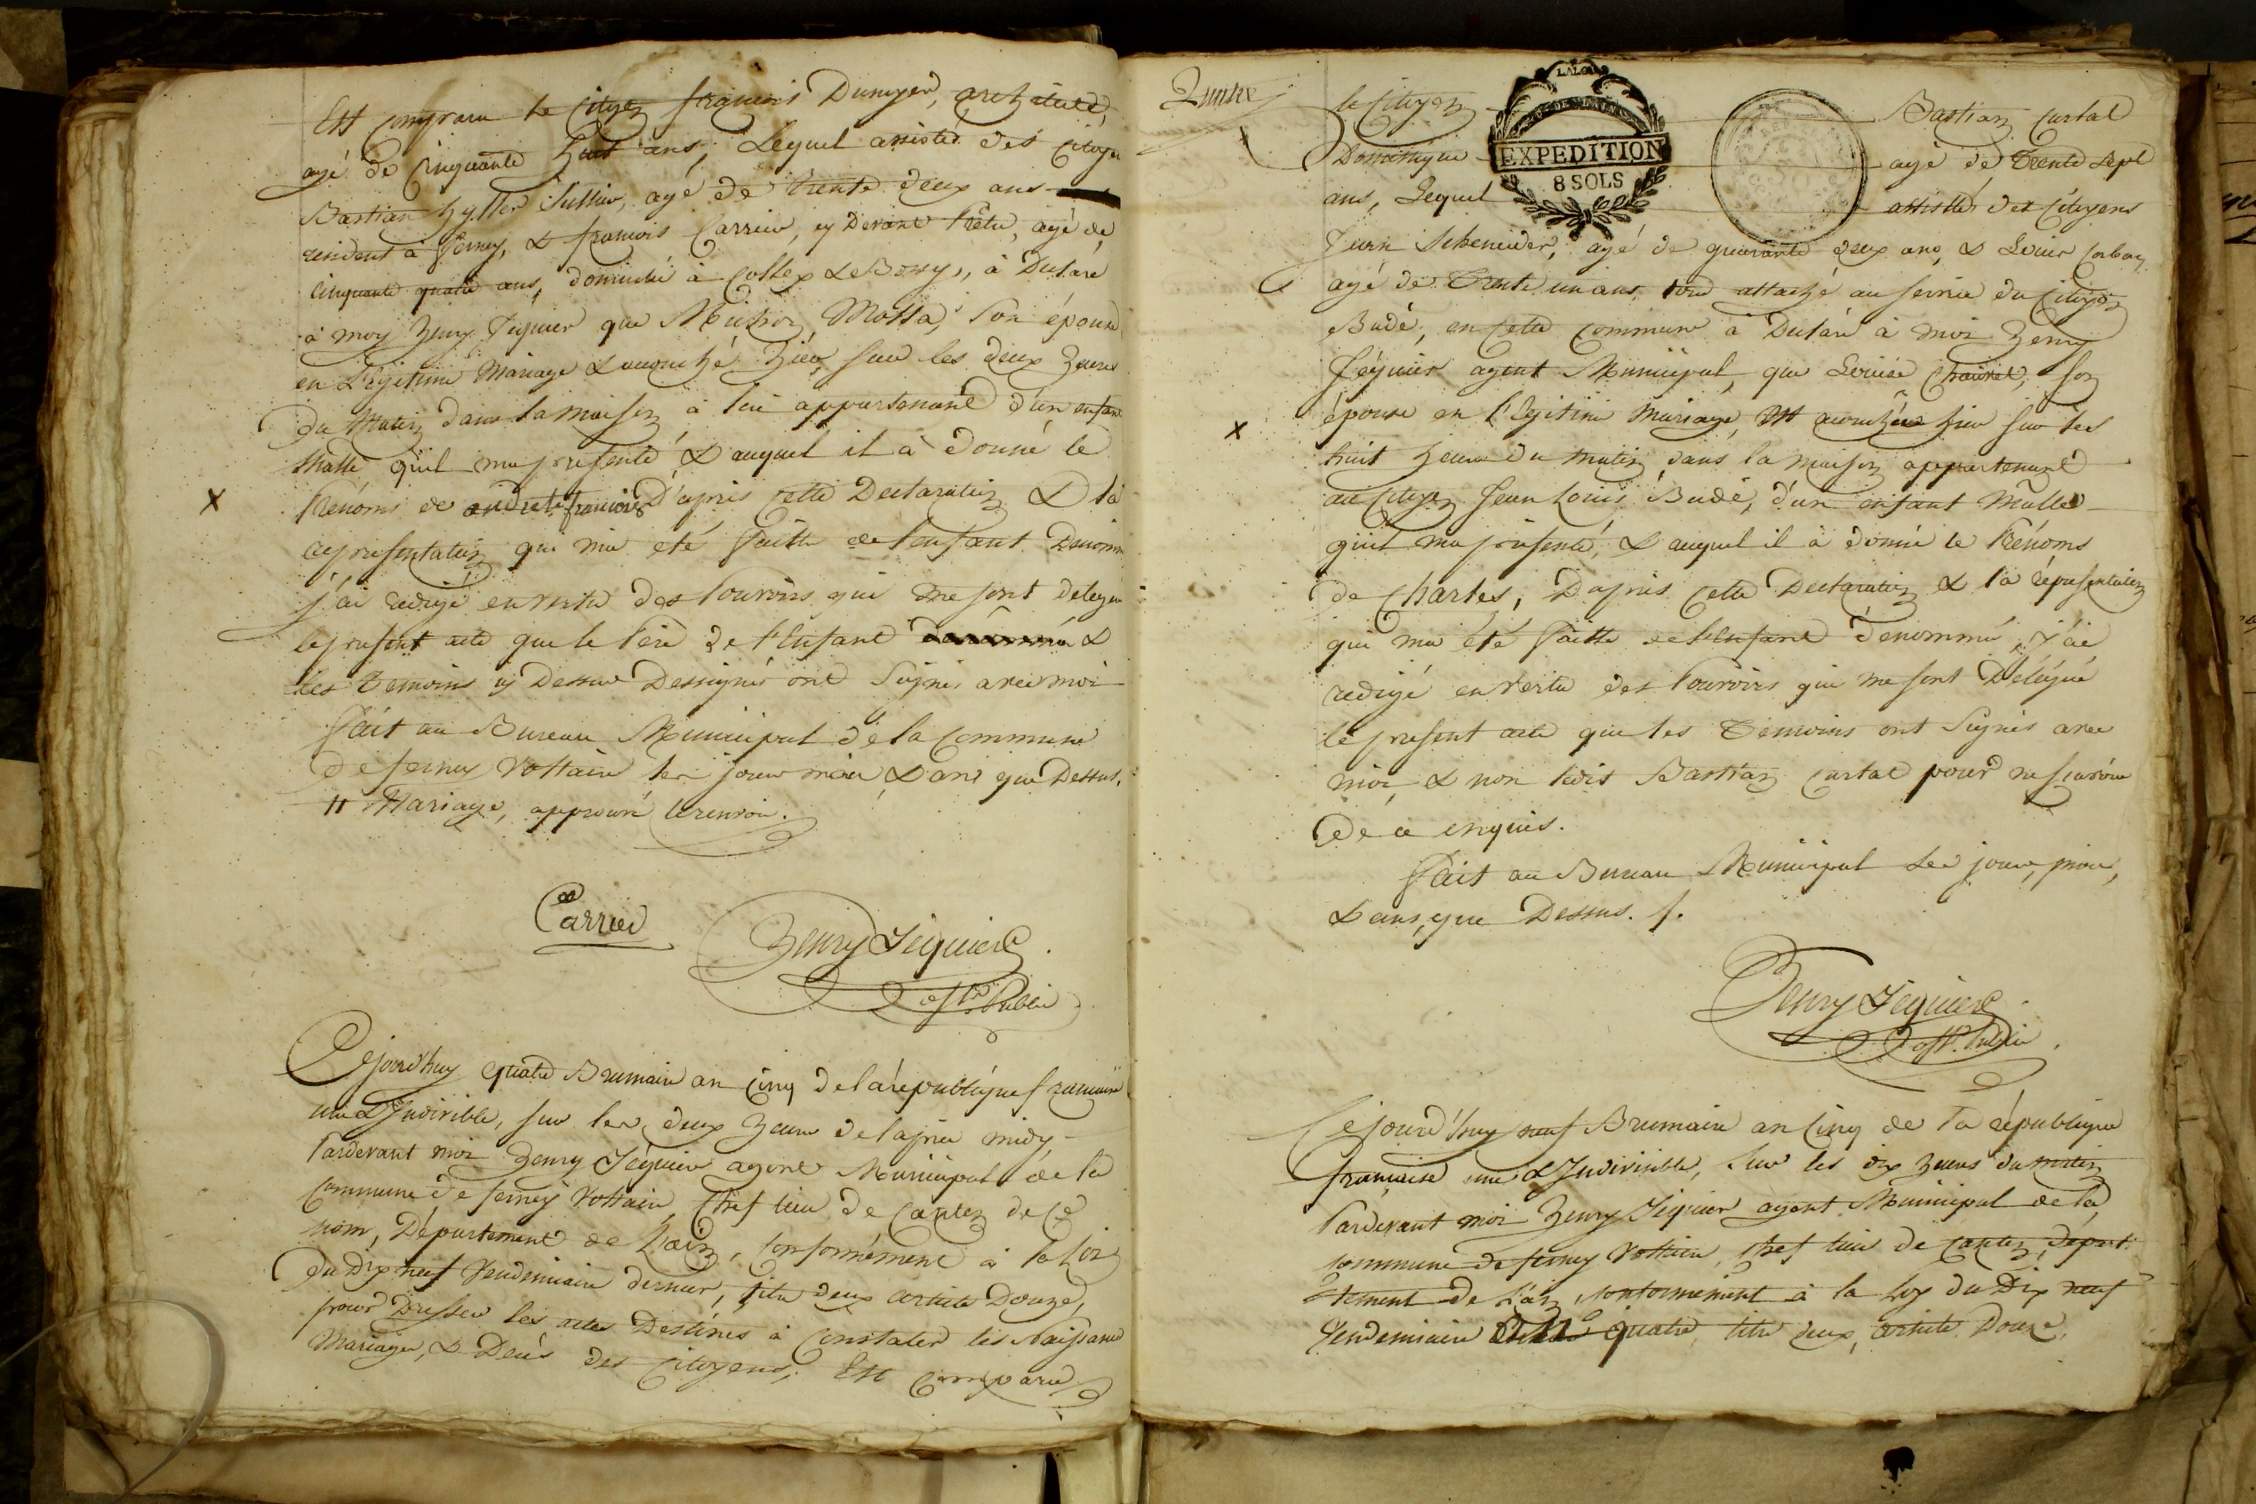 Est comparu le Citoyen françois Dunoyer, architecte,
agé de Cinquante huit ans, Lequel assisté des Citoyen
Bastian hyller Sellier, agé de trente deux ans
resident à ferney, & françois Carrier, cy Devant Prêtre, agé de
Cinquante quatre ans, domicilié à Collex & Bossy, à Déclaré
à moy henry Sequier que Motta, Son épouse
en Légitime Mariage & accouché hier, sur les deux heures
du Matin dans la maison à lui appartenant d'un enfant
Malle qu'il ma presenté & auquel il à donné le
Prénoms de françois D'apres cette Declaration & la
representation qui ma eté faitte de l'enfant Denom
j'ai redigé en vertu des Pouvoirs qui me sont delegué
le present acte que le Père de l'Enfant &
les Temoins cy Dessus Dessignés ont Signés avec moi
fait au Bureau Municipal de la Commune
de ferney Voltaire les jour mois & ans que Dessus.
Mariage, approuvé le renvoi.
Carrier
Henry Sequier
off. Public
Cejourd'huy quatre Brumaire an Cinq de la république francaise
une & Indivisible, sur les deux heure de laprès midy
Pardevant moi henry Séquier agent Municipal de la
Commune de ferney Voltaire Chef lieu de Canton de ce
nom, Département de L'ain, Conformément à la Loi
du Dix neuf Vendemiaire dernier, titre deux article Douze,
pour Dresser les actes Destinés à Constater les Naissance
Mariages, & Decés des Citoyens, Est Comparu
le Citoyen Bastian Curtal
EXPEDITION
8 SOLS
Dominique agé de Trente Sept
ans, Lequel assisté des Citoyens
Jean Scheneider, agé de quarante deux ans, & Louis
agé de Trente un ans, tous attaché au service du Citoyen
Budé, en Cette Commune à Déclaré à moi henry
Séquier agent Municipal, que Louise son
épouse en Légitime Mariage, Est accouchée hier sur les
huit heure du matin, dans la maison appartenant
au Citoyen Jean Louis Budé, d'un enfant Mâlle
qu'il ma présenté, & auquel il à donné le Prénoms
de Charles, D'après cette Declaration & la répresentation
qui ma été faitte de l'Enfant dénommé, j'ai
redigé en Vertu des Pouvoirs qui me sont Délégué
le present acte que les Temoins ont Signés avec
moi, & non ledis Bastian Curtal pour ne scavoir
de ce enquis.
fait au Bureau Municipal les jour, mois,
& ans, que Dessus.
Henry Sequier
off. Public
Cejourd'huy neuf Brumaire an Cinq de la république
française une & Indivisible, Sur les dix heures du matin
Pardevant moi henry Sequier agent Municipal de la
commune de ferney Voltaire, chef lieu de Canton, départ
tement de L'ain, conformément à la Loy du Dix neuf
Vendemiaire quatre titre deux, article Douze,